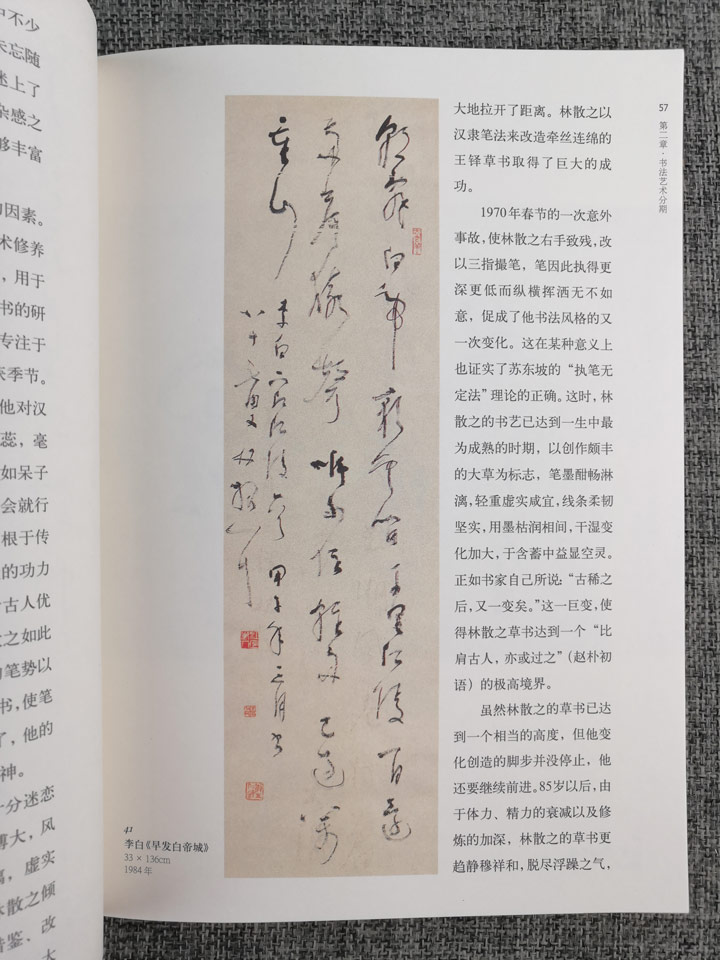 中不少
未忘随
迷上了
杂感之
够丰富
因素。
术修养
，用于
书的研
专注于
季节。
他对汉
蕊，毫
如呆子
会就行
根于传
的功力
古人优
之如此
笔势以
书，使笔
了，他的
神。
十分迷恋
博大，风
高，虚实
林散之倾
借鉴、改
57
第二章·书法艺术分期
大地拉开了距离。林散之以
汉隶笔法来改造牵丝连绵的
王铎草书取得了巨大的成
功。
1970年春节的一次意外
事故，使林散之右手致残，改
以三指撮笔，笔因此执得更
深更低而纵横挥洒无不如
意，促成了他书法风格的又
一次变化。这在某种意义上
也证实了苏东坡的“执笔无
定法”理论的正确。这时，林
散之的书艺已达到一生中最
为成熟的时期，以创作颇丰
的大草为标志，笔墨酣畅淋
漓，轻重虚实咸宜，线条柔韧
坚实，用墨枯润相间，干湿变
化加大，于含蓄中益显空灵。
正如书家自己所说：“古稀之
后，又一变矣。”这一巨变，使
得林散之草书达到一个“比
肩古人，亦或过之”（赵朴初
语）的极高境界。
虽然林散之的草书已达
到一个相当的高度，但他变
化创造的脚步并没停止，他
还要继续前进。85岁以后，由
于体力、精力的衰减以及修
炼的加深，林散之的草书更
趋静穆祥和，脱尽浮躁之气，
朝辞白帝彩云间千里江陵一日还
两岸猿声啼不住轻舟已过万
重山
李白下江陵 甲子年三月书
八十七叟林散耳
41
李白《早发白帝城》
33 × 136cm
1984 年